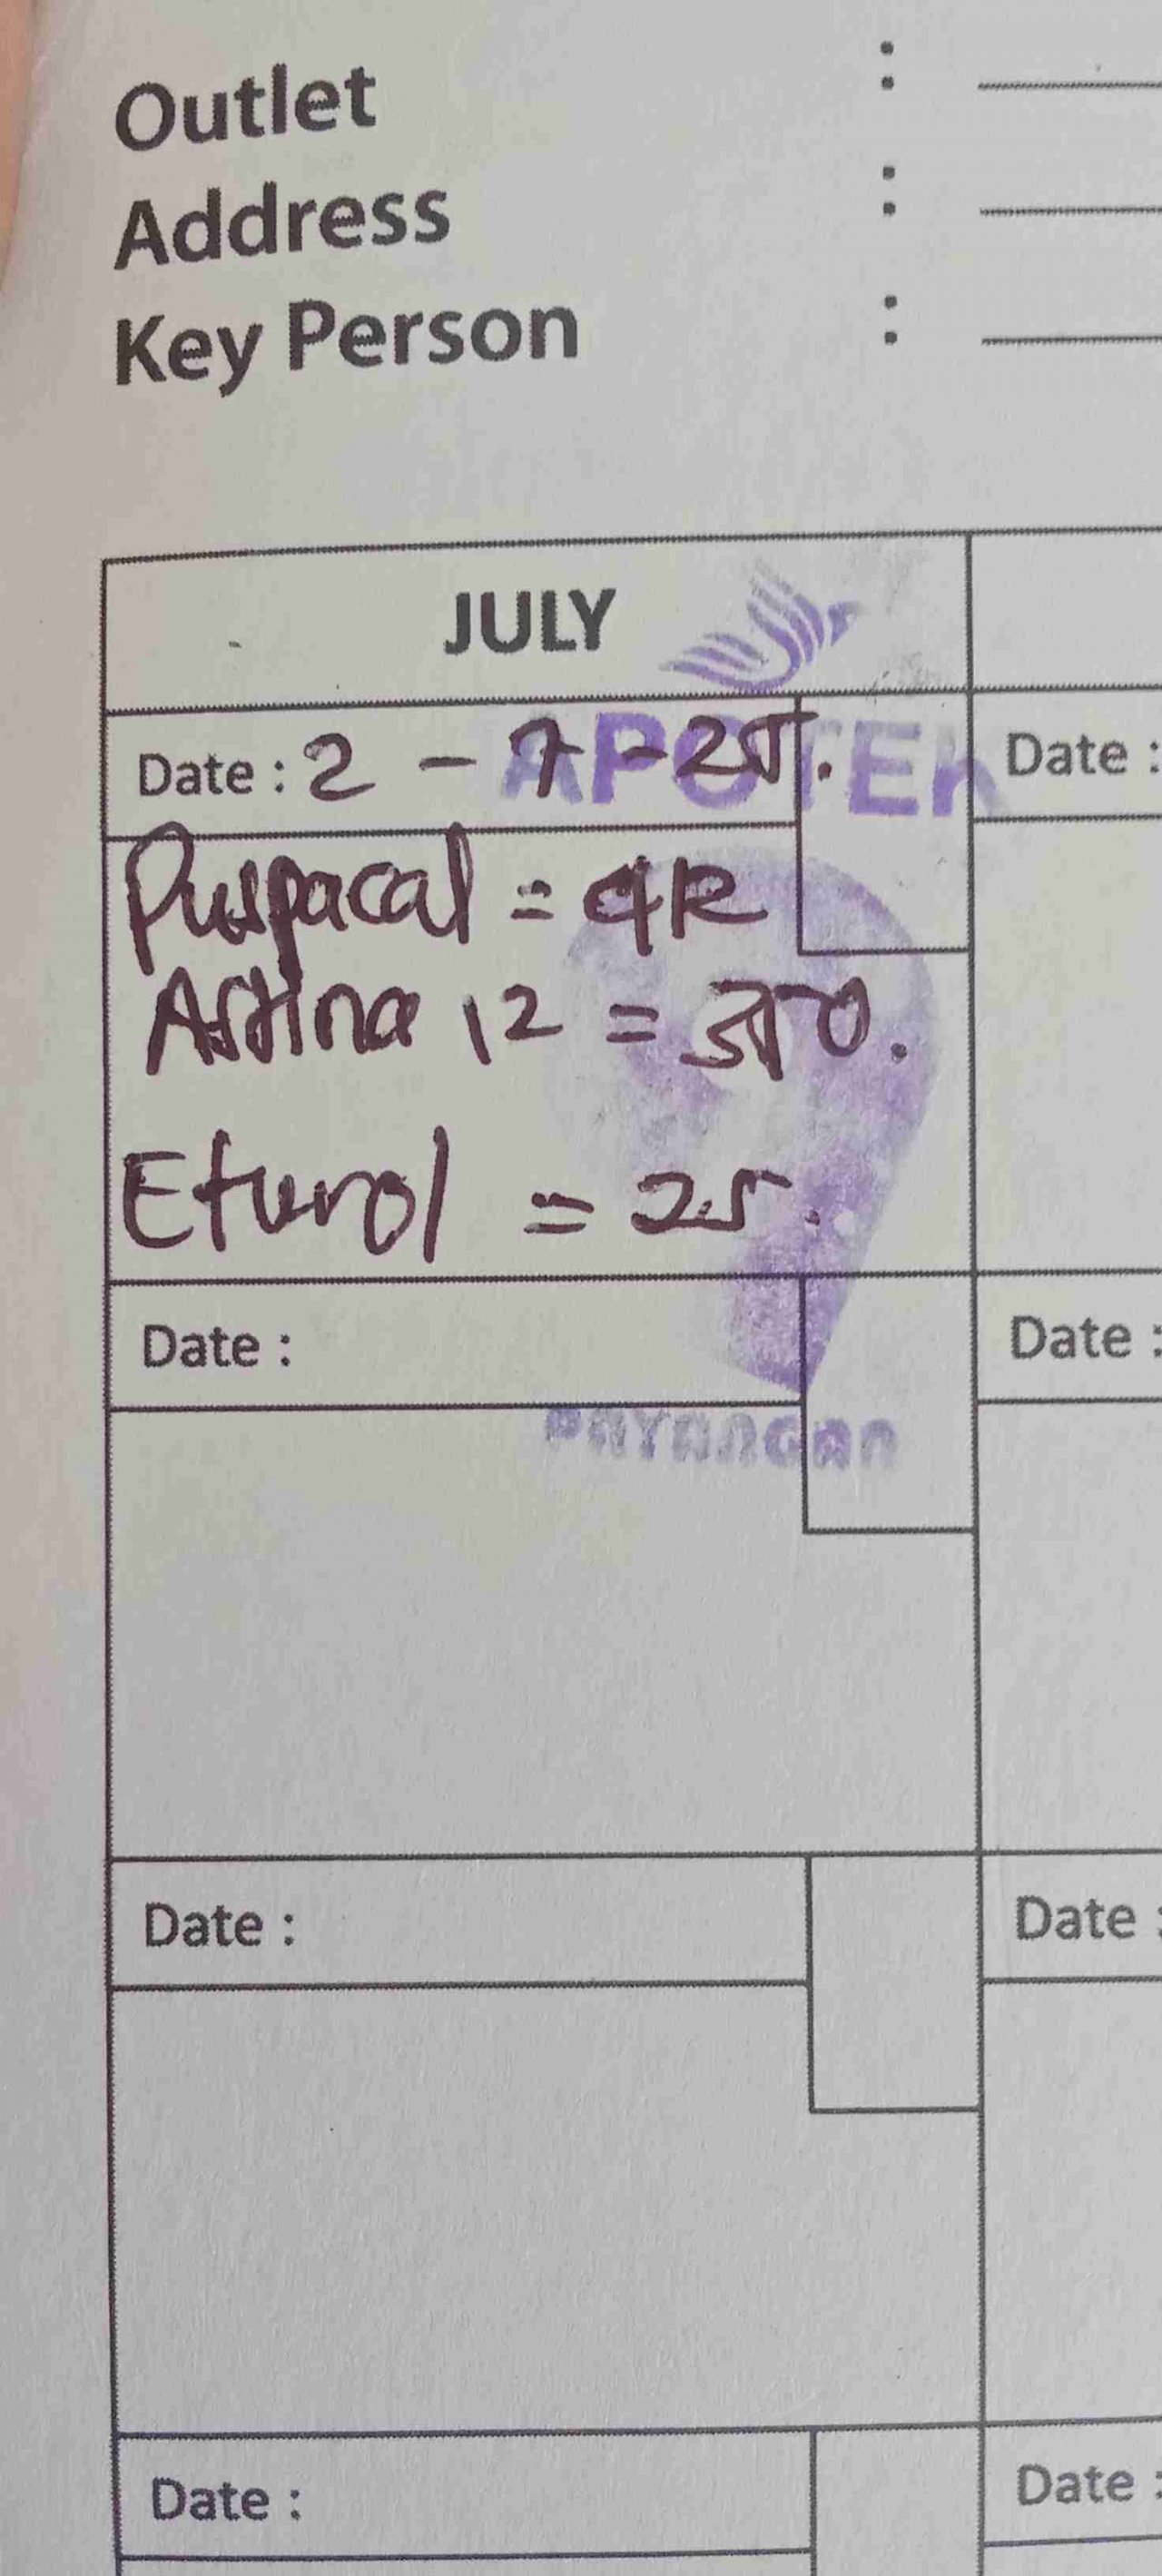 Outlet :
Address :
Key Person :
JULY
APOTEK
Date : 2 - 7 - 25. Date :
Puspacal = 4R
Astina 12 = 350.
Eturol = 25.
Date : Date :
PAYANGAN
Date : Date :
Date : Date :